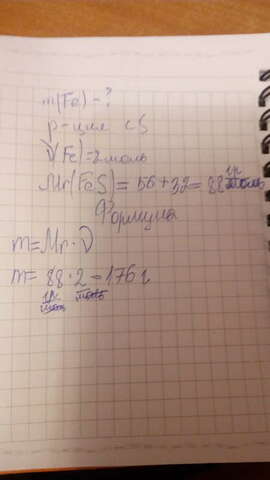 m(Fe)-?
р-ция с S
ν(Fe)=2моль
Mr(FeS)=56+32=88 гр
моль
Формула
m=Mr·ν
m=88·2=176 г
гр